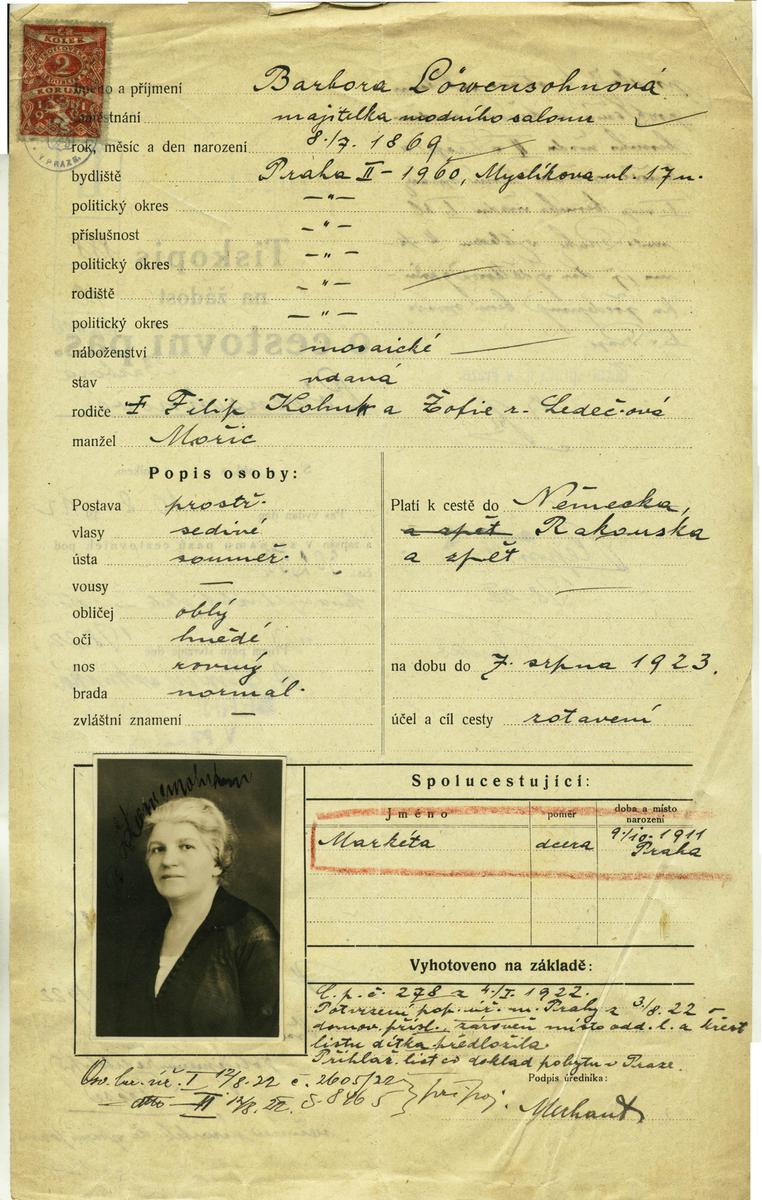 KOLEK
2
KORUNY
V PRAZE
jméno a příjmení Barbora Löwensohnová
zaměstnání majitelka modního salonu
rok, měsíc a den narození 8./7. 1869
bydliště Praha II - 1960, Myslíkova ul. 17 n.
politický okres — " —
příslušnost — " —
politický okres — " —
rodiště — " —
politický okres — " —
náboženství mosaické
stav vdaná
rodiče Filip Kohn a Žofie r. Ledeč-ová
manžel Mořic
Popis osoby:
Postava prostř.
vlasy šedivé
ústa souměr.
vousy —
obličej oblý
oči hnědé
nos rovný
brada normál.
zvláštní znamení —
Platí k cestě do Německa,
a zpět Rakouska
a zpět
na dobu do 7. srpna 1923.
účel a cíl cesty zotavení
Spolucestující:
Jméno poměr doba a místo narození
Markéta dcera 9./10. 1911 Praha
Vyhotoveno na základě:
C. p. č. 278 z 4./I. 1922.
Potvrzení pop. úř. m. Prahy z 3/8. 22 o
domov. přísl., zároveň místo odd. l. a křest
listu dítka předložila
Přihlaš. list co doklad pobytu v Praze.
Podpis úředníka:
I 12/8. 22 č. 2605/22
dto II 12/8. 22. 8465 připoj.